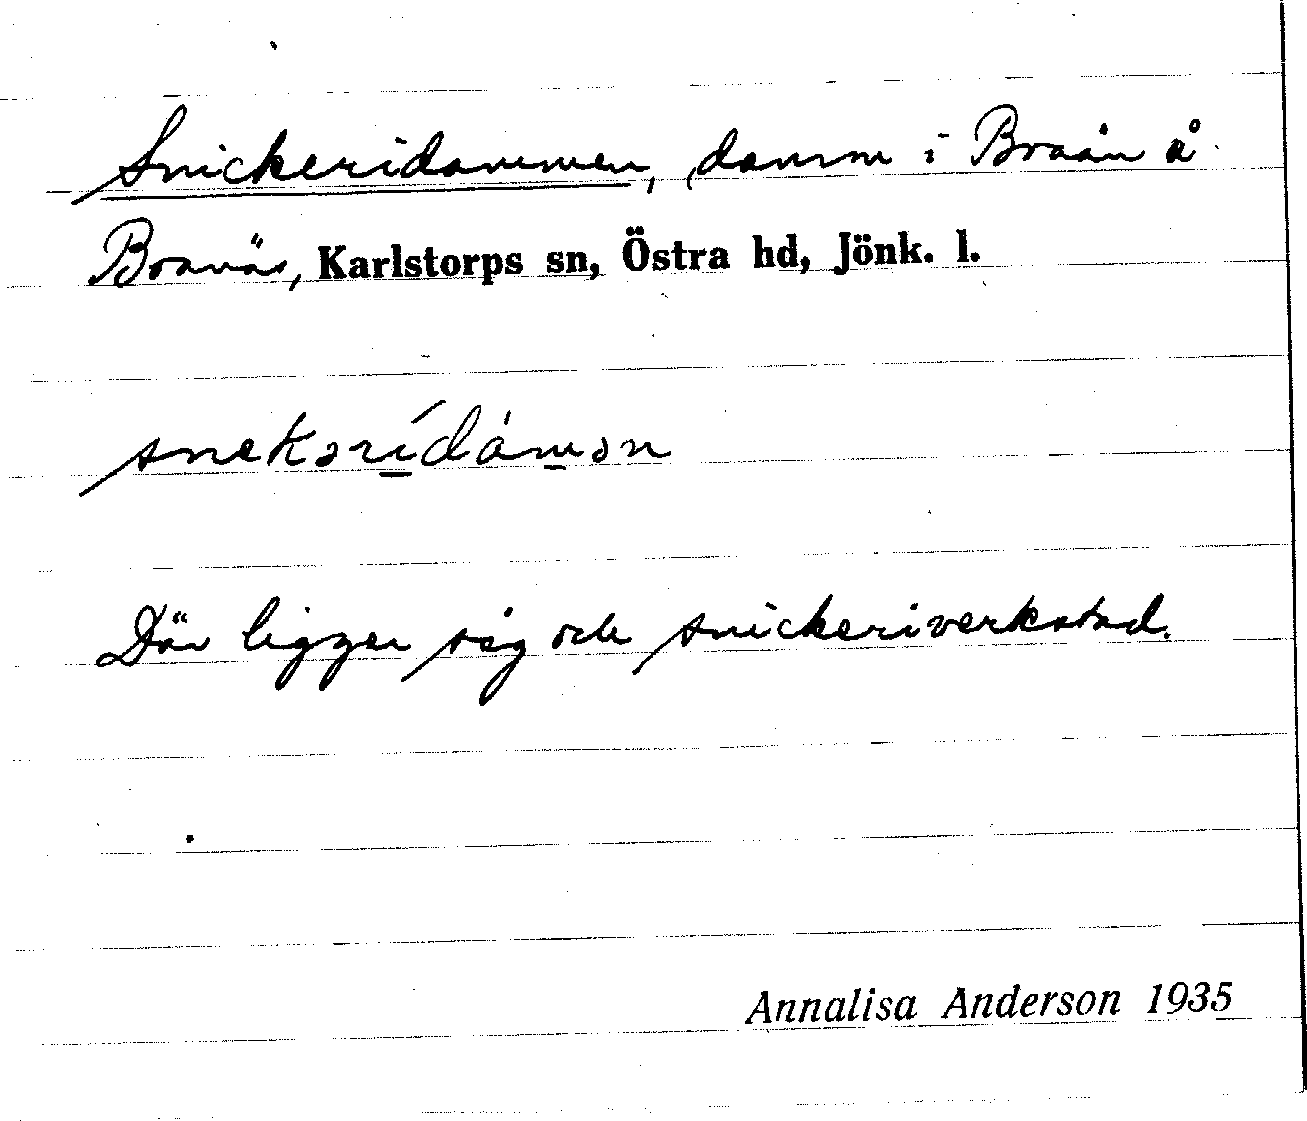 Snickeridammen, damm i Broån å
Bronäs, Karlstorps sn, Östra hd, Jönk. l.
snekərídámən
Där ligger såg och snickeriverkstad.
Annalisa Anderson 1935